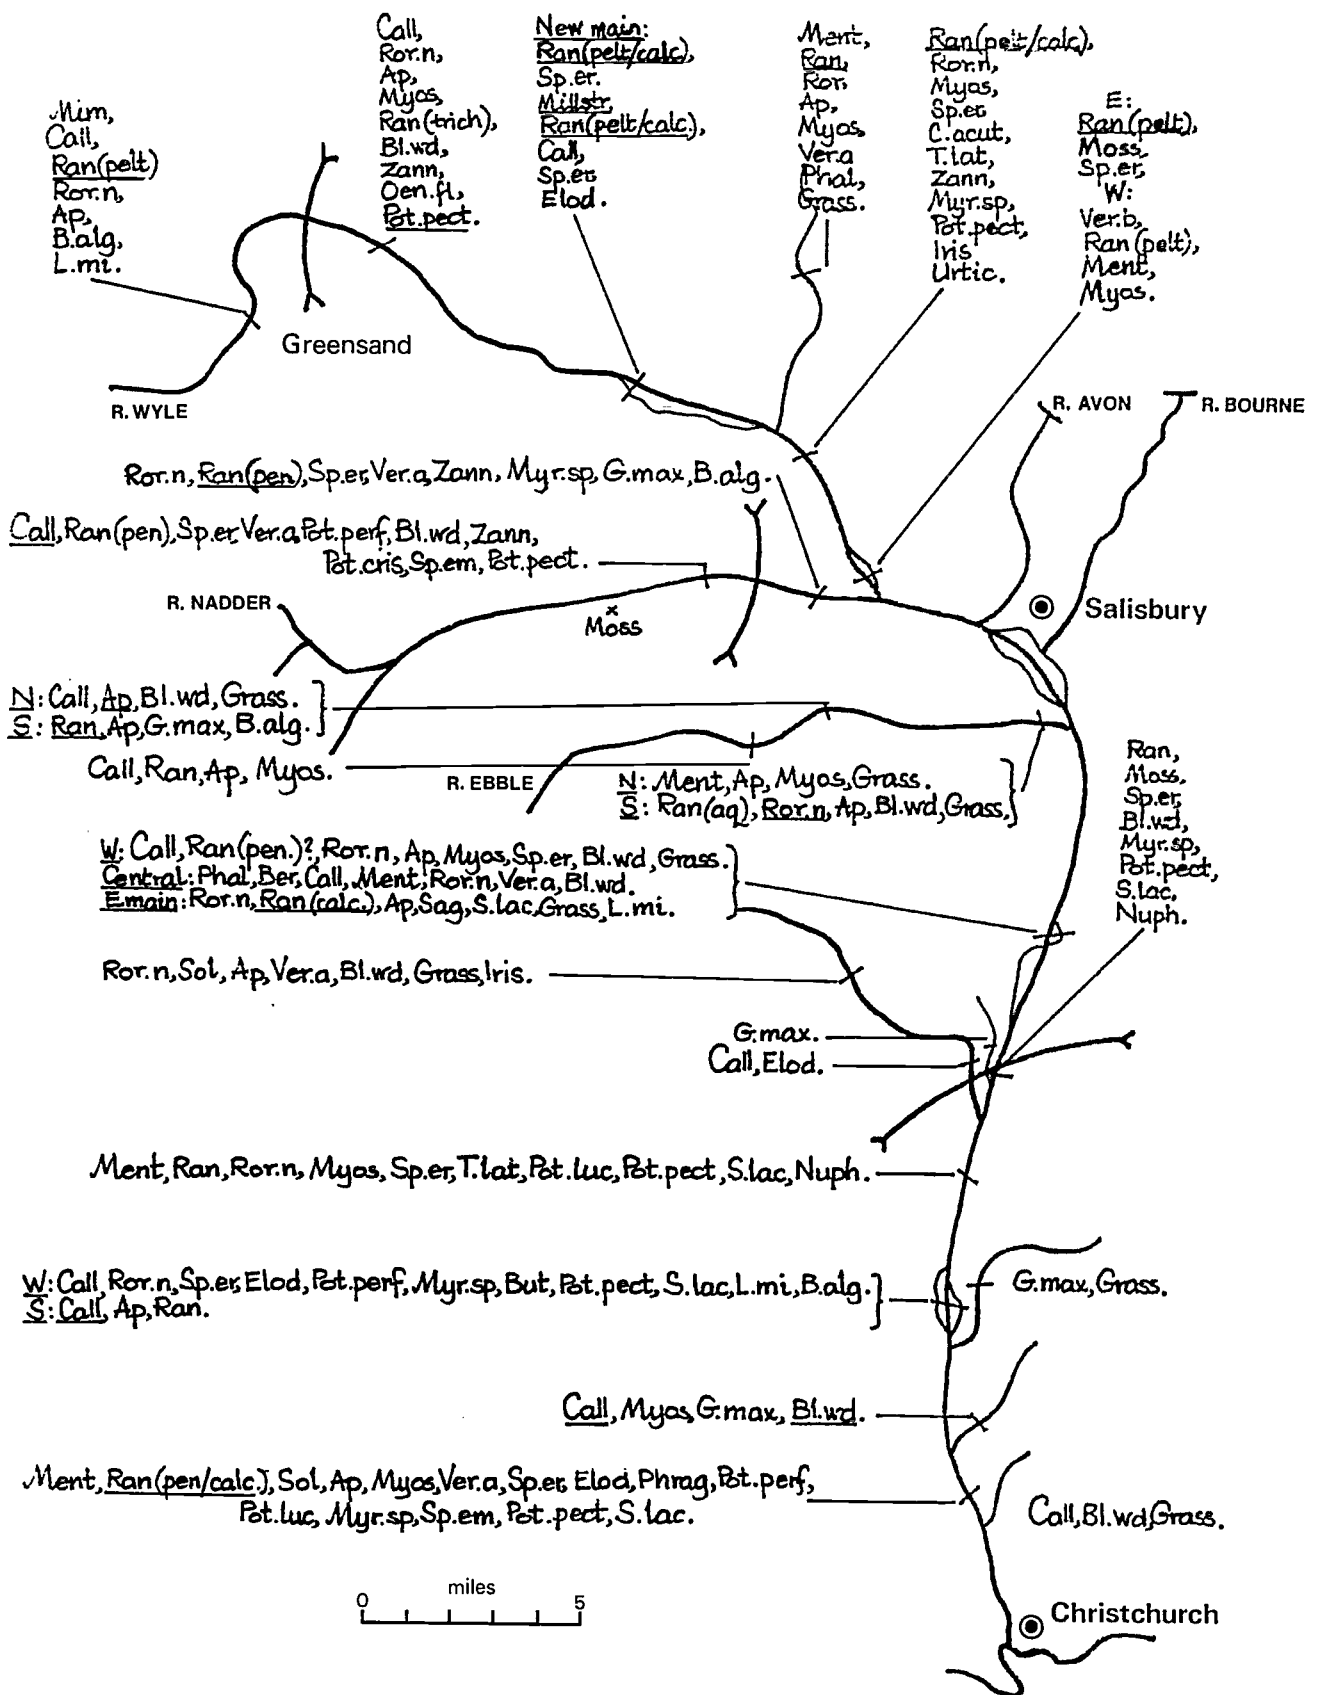 Mim,
Call,
Ran(pelt)
Ror.n,
Ap,
B.alg,
L.mi.
Call,
Ror.n,
Ap,
Myos,
Ran(trich),
Bl.wd,
Zann,
Oen.fl,
Pot.pect.
New main:
Ran(pelt/calc),
Sp.er.
Millstr,
Ran(pelt/calc.),
Call,
Sp.er
Elod.
Ment,
Ran,
Ror,
Ap,
Myos,
Ver.a
Phal,
Grass.
Ran(pelt/calc),
Ror.n,
Myos,
Sp.er
C.acut,
T.lat,
Zann,
Myr.sp,
Pot.pect,
Iris
Urtic.
E:
Ran(pelt),
Moss,
Sp.er,
W:
Ver.b,
Ran(pelt),
Ment,
Myos.
Greensand
R. WYLE
R. AVON
R. BOURNE
Ror.n, Ran(pen), Sp.er, Ver.a, Zann, Myr.sp, G.max, B.alg.
Call, Ran(pen), Sp.er, Ver.a, Pot.perf, Bl.wd, Zann,
Pot.cris, Sp.em, Pot.pect.
R. NADDER
x
Moss
Salisbury
N: Call, Ap, Bl.wd, Grass.
S: Ran, Ap, G.max, B.alg.
Call, Ran, Ap, Myos.
R. EBBLE
N: Ment, Ap, Myos, Grass.
S: Ran(aq), Ror.n, Ap, Bl.wd, Grass,
Ran,
Moss,
Sp.er,
Bl.wd,
Myr.sp,
Pot.pect,
S.lac,
Nuph.
W: Call, Ran(pen.)?, Ror.n, Ap, Myos, Sp.er, Bl.wd, Grass.
Central: Phal, Ber, Call, Ment, Ror.n, Ver.a, Bl.wd.
E main: Ror.n, Ran(calc.), Ap, Sag, S.lac, Grass, L.mi.
Ror.n, Sol, Ap, Ver.a, Bl.wd, Grass, Iris.
G.max.
Call, Elod.
Ment, Ran, Ror.n, Myos, Sp.er, T.lat, Pot.luc, Pot.pect, S.lac, Nuph.
W: Call, Ror.n, Sp.er, Elod, Pot.perf, Myr.sp, But, Pot.pect, S.lac, L.mi, B.alg.
S: Call, Ap, Ran.
G.max, Grass.
Call, Myos, G.max, Bl.wd.
Ment, Ran(pen/calc.), Sol, Ap, Myos, Ver.a, Sp.er, Elod, Phrag, Pot.perf,
Pot.luc, Myr.sp, Sp.em, Pot.pect, S.lac.
Call, Bl.wd, Grass.
miles
0 5
Christchurch